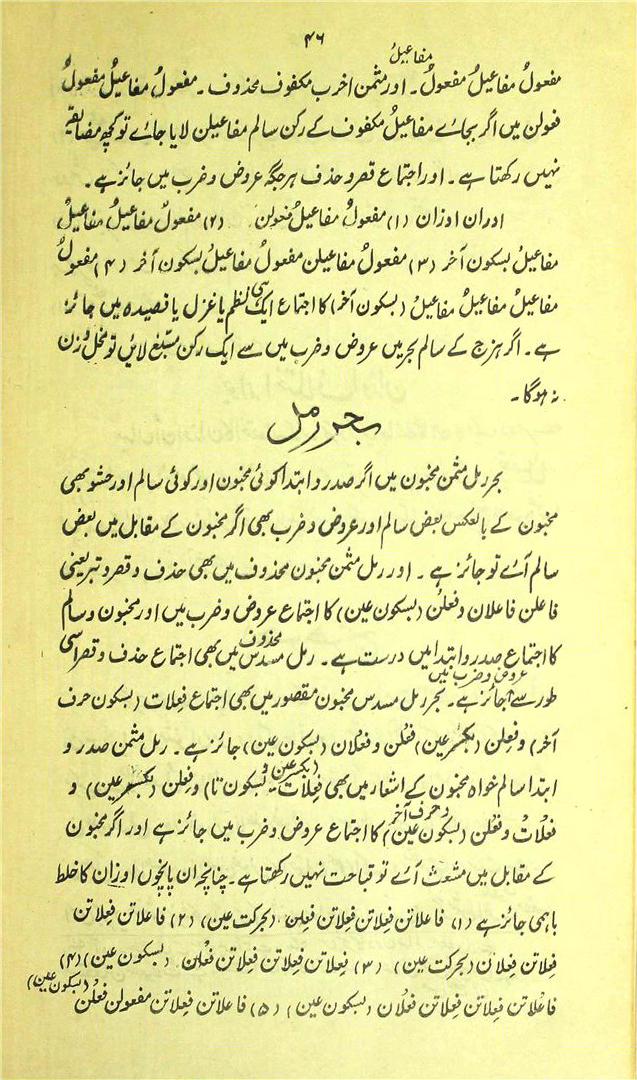 ۴۶
مفاعیلُ
مفعولُ مفاعیلُ مفعولُ۔ اور مثمن اخرب مکفوف محذوف۔ مفعولُ مفاعیلُ مفعولُ
فعولن میں اگر بجائے مفاعیلُ مکفوف کے رکن سالم مفاعیلن لایا جائے تو کچھ مضایقہ
نہیں رکھتا ہے۔ اور اجتماع قصر و حذف ہر جگہ عروض و ضرب میں جائز ہے۔
اور ان اوزان (۱) مفعولُ مفاعیلُ فعولن (۲) مفعولُ مفاعیلُ مفاعیلُ
مفاعیلُ بسکون آخر (۳) مفعولُ مفاعیلن مفعولُ مفاعیلُ بسکون آخر (۴) مفعولُ
مفاعیلُ مفاعیلُ مفاعیلُ (بسکون آخر) کا اجتماع ایک ہی نظم یا غزل یا قصیدہ میں جائز
ہے۔ اگر ہزج کے سالم بحر میں عروض و ضرب میں سے ایک رکن مسبغ لائیں تو مخل وزن
نہ ہوگا۔
بحر رمل
بحر رمل مثمن مخبون میں اگر صدر و ابتدا کوئی مخبون اور کوئی سالم اور حشو بھی
مخبون کے بالعکس بعض سالم اور عروض و ضرب بھی اگر مخبون کے مقابل میں بعض
سالم آئے تو جائز ہے۔ اور رمل مثمن مخبون محذوف میں بھی حذف و قصر و تبر یعنی
فاعلن فاعلان و فعلن (بسکون عین) کا اجتماع عروض و ضرب میں اور مخبون و سالم
کا اجتماع صدر و ابتدا میں درست ہے۔ رمل مسدس محذوف میں بھی اجتماع حذف و قصر اسی
طور سے عروض و ضرب میں جائز ہے۔ بحر رمل مسدس مخبون مقصور میں بھی اجتماع فعلات (بسکون حرف
آخر) و فعلن (بکسر عین) فعلن و فعلان (بسکون عین) جائز ہے۔ رمل مثمن صدر و
ابتدا سالم خواہ مخبون کے اشعار میں بھی فعلات (بکسر عین و بسکون تا) و فعلن (بکسر عین) و
فعلاتُ و فعلن (بسکون عین و حرف آخر) کا اجتماع عروض و ضرب میں جائز ہے اور اگر مخبون
کے مقابل میں مشعث آئے تو قباحت نہیں رکھتا ہے۔ چنانچہ ان پانچوں اوزان کا خلط
باہمی جائز ہے (۱) فاعلاتن فعلاتن فعلاتن فعلن (بحرکت عین) (۲) فاعلاتن فعلاتن
فعلاتن فعلان (بحرکت عین) (۳) فعلاتن فعلاتن فعلاتن فعلن (بسکون عین) (۴)
فاعلاتن فعلاتن فعلاتن فعلان (بسکون عین) (۵) فاعلاتن فعلاتن مفعولن فعلن (بسکون عین)